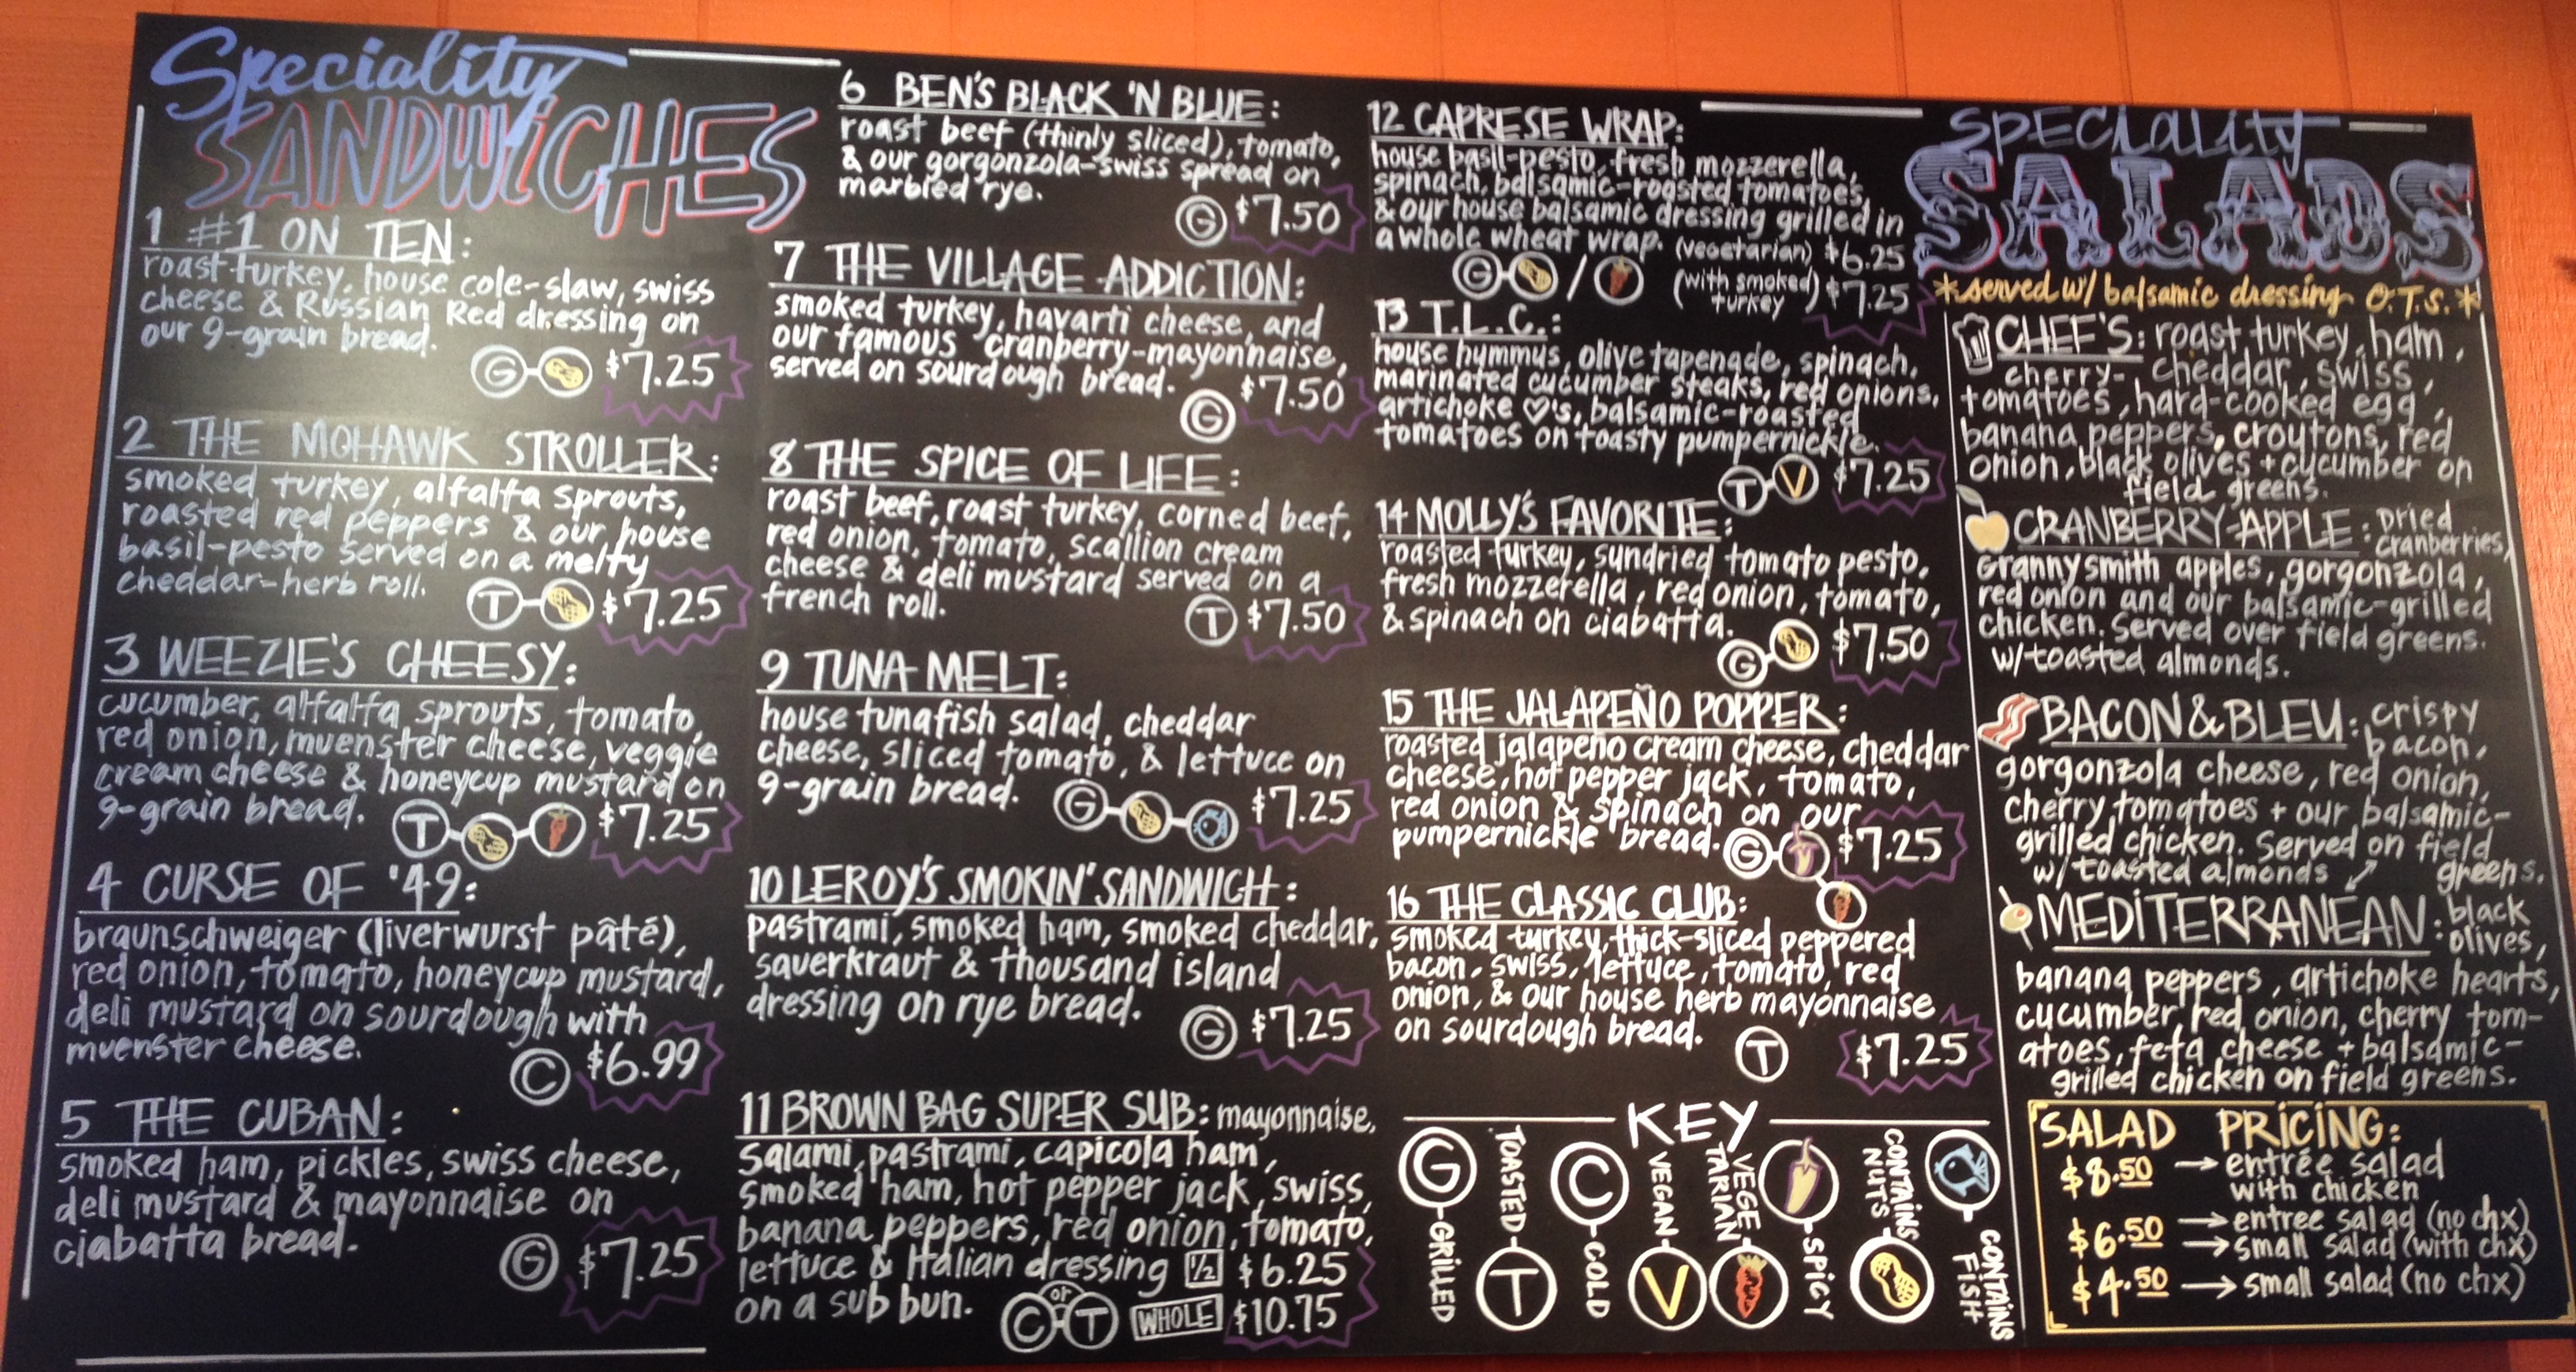 Speciality
SANDWiCHES
1 #1 ON TEN:
roast turkey, house cole-slaw, swiss
cheese & Russian Red dressing on
our 9-grain bread.
G $7.25
2 THE MOHAWK STROLLER:
smoked turkey, alfalfa sprouts,
roasted red peppers & our house
basil-pesto served on a melty
cheddar-herb roll.
T $7.25
3 WEEZIE'S CHEESY:
cucumber, alfalfa sprouts, tomato,
red onion, muenster cheese, veggie
cream cheese & honeycup mustard on
9-grain bread.
T $7.25
4 CURSE OF '49:
braunschweiger (liverwurst pâté),
red onion, tomato, honeycup mustard,
deli mustard on sourdough with
muenster cheese.
C $6.99
5 THE CUBAN:
smoked ham, pickles, swiss cheese,
deli mustard & mayonnaise on
ciabatta bread.
G $7.25
6 BEN'S BLACK 'N BLUE:
roast beef (thinly sliced), tomato,
& our gorgonzola-swiss spread on
marbled rye.
G $7.50
7 THE VILLAGE ADDICTION:
smoked turkey, havarti cheese, and
our famous cranberry-mayonnaise,
served on sourdough bread.
G $7.50
8 THE SPICE OF LIFE:
roast beef, roast turkey, corned beef,
red onion, tomato, scallion cream
cheese & deli mustard served on a
french roll.
T $7.50
9 TUNA MELT:
house tunafish salad, cheddar
cheese, sliced tomato, & lettuce on
9-grain bread.
G $7.25
10 LEROY'S SMOKIN' SANDWICH:
pastrami, smoked ham, smoked cheddar,
sauerkraut & thousand island
dressing on rye bread.
G $7.25
11 BROWN BAG SUPER SUB: mayonnaise,
salami, pastrami, capicola ham,
smoked ham, hot pepper jack, swiss,
banana peppers, red onion, tomato,
lettuce & Italian dressing 1/2 $6.25
on a sub bun. C or T WHOLE $10.75
12 CAPRESE WRAP:
house basil-pesto, fresh mozzerella,
spinach, balsamic-roasted tomatoes,
& our house balsamic dressing grilled in
a whole wheat wrap. (vegetarian) $6.25
G / (with smoked turkey) $7.25
13 T.L.C.:
house hummus, olive tapenade, spinach,
marinated cucumber steaks, red onions,
artichoke ♡'s, balsamic-roasted
tomatoes on toasty pumpernickle.
T V $7.25
14 MOLLY'S FAVORITE:
roasted turkey, sundried tomato pesto,
fresh mozzerella, red onion, tomato,
& spinach on ciabatta.
G $7.50
15 THE JALAPEÑO POPPER:
roasted jalapeño cream cheese, cheddar
cheese, hot pepper jack, tomato,
red onion & spinach on our
pumpernickle bread. G $7.25
16 THE CLASSIC CLUB:
smoked turkey, thick-sliced peppered
bacon, swiss, lettuce, tomato, red
onion, & our house herb mayonnaise
on sourdough bread.
T $7.25
KEY
G GRILLED
TOASTED T
C COLD
VEGAN V
VEGETARIAN
SPICY
CONTAINS NUTS
CONTAINS FISH
SPECiALiTY
SALADS
*served w/ balsamic dressing O.T.S.*
CHEF'S: roast turkey, ham,
cherry- cheddar, swiss,
tomatoes, hard-cooked egg,
banana peppers, croutons, red
onion, black olives + cucumber on
field greens.
CRANBERRY-APPLE: dried
cranberries,
granny smith apples, gorgonzola,
red onion and our balsamic-grilled
chicken. Served over field greens.
w/ toasted almonds.
BACON & BLEU: crispy
bacon,
gorgonzola cheese, red onion,
cherry tomatoes + our balsamic-
grilled chicken. Served on field
w/ toasted almonds greens.
MEDiTERRANEAN: black
olives,
banana peppers, artichoke hearts,
cucumber, red onion, cherry tom-
atoes, feta cheese + balsamic-
grilled chicken on field greens.
SALAD PRiCiNG:
$8.50 → entrée salad
with chicken
$6.50 → entree salad (no chx)
→ small salad (with chx)
$4.50 → small salad (no chx)